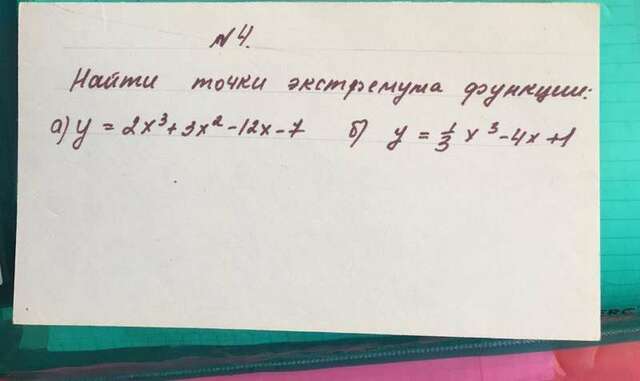 №4.
Найти точки экстремума функции:
а) y = 2x³ + 3x² - 12x - 7 б) y = 1/3 x³ - 4x + 1